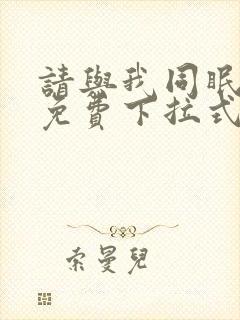 請與我同眠
免費下拉式
索曼兒